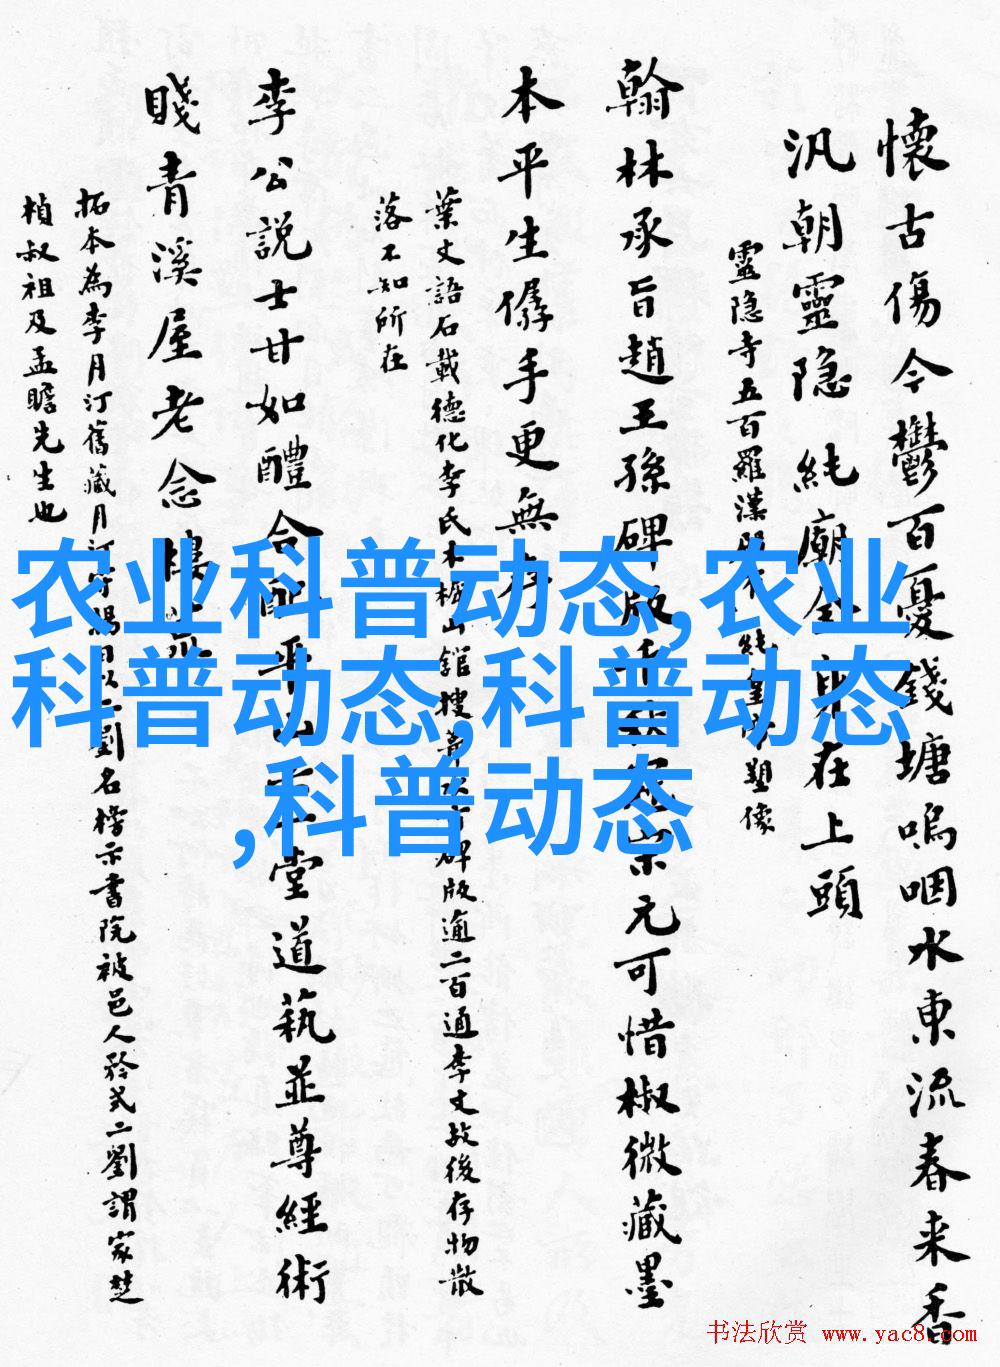 懷古傷今鬱百憂錢塘嗚咽水東流春来香
汎朝靈隐純廟金身在上頭
靈隐寺五百羅漢 純皇 塑像
翰林承旨趙王孫碑版 元可惜椒微藏墨
本平生儔手更無
葉文語石載德化李氏木樨山館搜 碑版逾二百通李文故後存物散
落不知所在
李公説士甘如醴合配平 堂道蓺並尊經術
賤青溪屋老念樓
拓本為李月汀舊藏月汀 劉名榜示書院被邑人矜式二劉謂家楚
楨叔祖及孟瞻先生也
农业科普动态,农业
科普动态,科普动态
,科普动态
书法欣赏 www.yac8.com